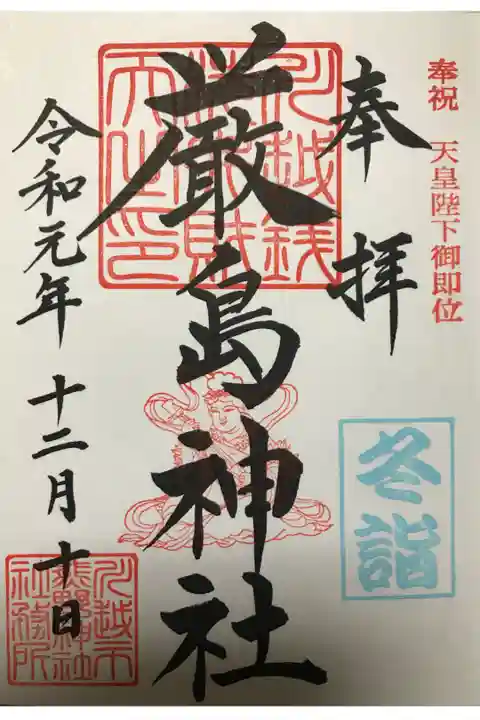 奉祝 天皇陛下御即位
奉拝
冬詣
川越銭
財
天之印
厳島神社
令和元年 十二月 十日
川越市
熊野神社
社務所